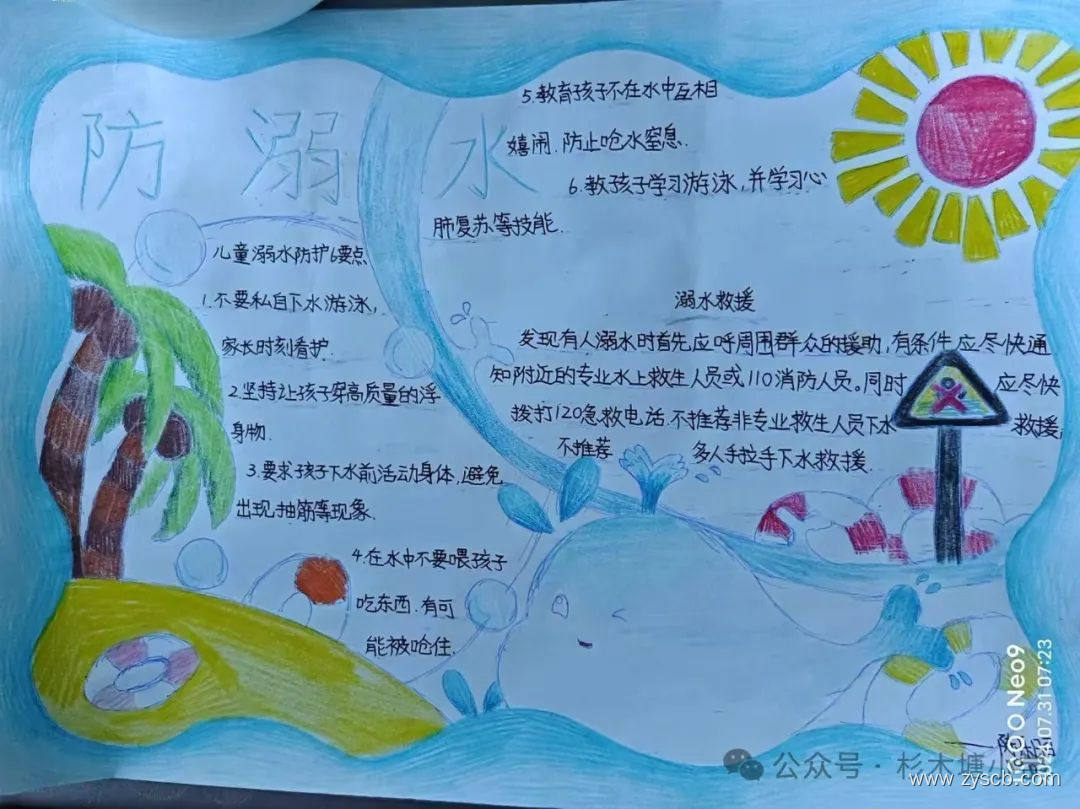 防溺水
儿童溺水防护6要点
1.不要私自下水游泳，
家长时刻看护.
2.坚持让孩子穿高质量的浮
身物.
3.要求孩子下水前活动身体，避免
出现抽筋等现象.
4.在水中不要喂孩子
吃东西.有可
能被呛住.
5.教育孩子不在水中互相
嬉闹.防止呛水窒息.
6.教孩子学习游泳，并学习心
肺复苏等技能.
溺水救援
发现有人溺水时首先应呼周围群众的援助，有条件应尽快通
知附近的专业水上救生人员或110消防人员。同时应尽快
拨打120急救电话.不推荐非专业救生人员下水救援，
不推荐多人手拉手下水救援.
公众号·杉木塘小
www.zyscb.com
iQOO Neo9
07.31 07:23